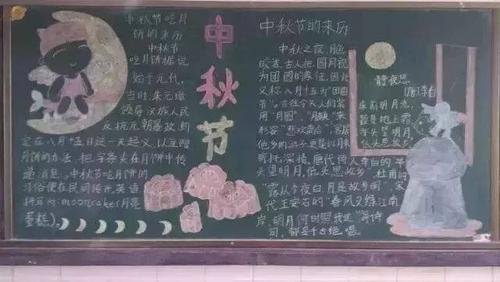 中秋节吃月
饼的来历
中秋节
吃月饼据说
始于元代,
当时,朱元璋
领导汉族人民
反抗元朝暴政,约
定在八月十五日这一天起义,以互赠
月饼的办法,把字条夹在月饼中传
递消息。中秋节吃月饼的
习俗便在民间传开,英语
mooncakes月是
蛋糕)。
中秋节
中秋节的来历
中秋之夜,月色
皎洁,古人把圆月视
为团圆的象征,因此,
又称八月十五为“团圆
节”。古往今来,人们常
用“月圆”、“月缺”来
形容“悲欢离合”,客居
他乡的游子更是以月来
寄托深情。唐代诗人李白的“举
头望明月,低头思故乡”,杜甫的
“露从今夜白,月是故乡明”,宋
代王安石的“春风又绿江南
岸,明月何时照我还”等诗
句,都是千古绝唱。
静夜思
唐:李白
床前明月光,
疑是地上霜。
举头望明月,
低头思故乡。